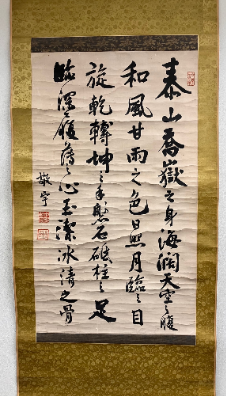 泰山喬嶽之身海濶天空之腹
和風甘雨之色日照月臨之目
旋乾轉坤之手磐石砥柱之足
臨深履薄之心玉潔冰清之骨
敬宇